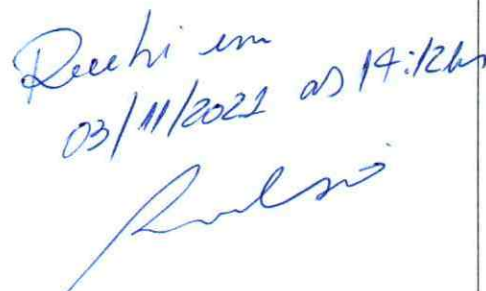 Recebi em
03/11/2021 as 14:12hs